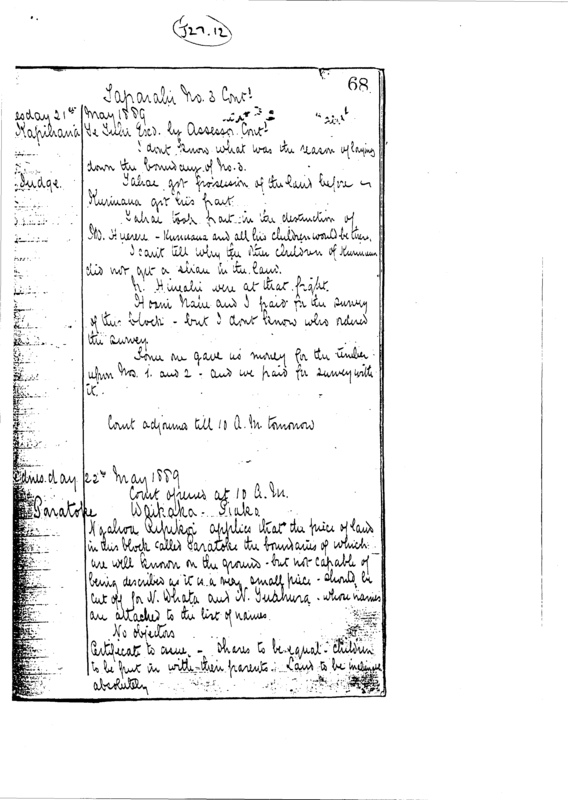 J27.12
68
No. 3 Cont'd
esday 21st May 1889
Kapihana Te Tuhi Exd. by Assessor Cont'd
I dont know what was the reason of laying
down the boundary of No. 3.
Judge. Tahae got possession of the land before
got his part
Tahae took part in the destruction of
and all his children would be there.
I can't tell why the other children of
did not get a share in the land.
N. were at that fight.
and I paid for the survey
of the block - but I dont know who ordered
the survey
Some one gave us money for the timber
upon Nos. 1. and 2 - and we paid for survey with
it.
Court adjourns till 10 A.M tomorrow
ednesday 22nd May 1889
Court opened at 10 A.M.
Paratoke
Ngahiwa applies that the piece of land
in this block called Paratoke the boundaries of which
are well known on the ground - but not capable of
being described as it is a very small piece - should be
cut off for N. Whata and N. - whose names
are attached to the list of names.
No objectors
Certificate to issue - Shares to be equal - children
to be put in with their parents. Land to be
absolutely